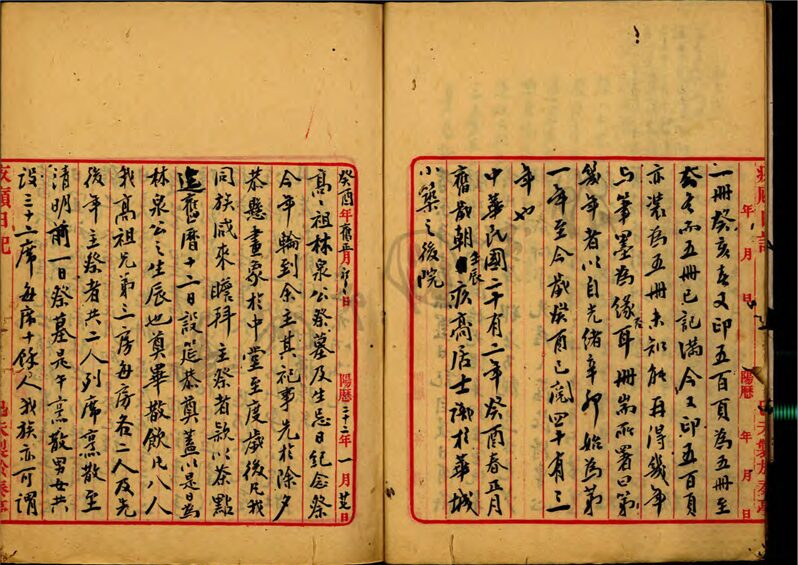 一冊癸亥春又印五百頁為五冊至
癸酉而五冊已記滿今又印五百頁
亦裝為五冊未知能再得幾年
與筆墨為緣耳冊耑所署曰第
幾年者以自光緒辛卯始為第
一年至今歲癸酉已閱四十有三
年也
中華民國二十有二年癸酉春正月
舊歲朝壬辰 居士識於華城
小築之後院
年 月 日 陽曆 年 月 日
癸酉年舊正月初二日 陽曆二十二年一月廿七日
高祖林泉公祭墓及生忌日紀念祭
今年輪到余主其祀事先於除夕
恭懸畫象於中堂至度歲後凡我
同族咸來瞻拜主祭者款以茶點
迄舊曆十二日設筵恭奠蓋以是日為
林泉公之生辰也奠畢散飲凡八人
我高祖兄弟三房每房各二人及先
後年主祭者共二人列席烹散至
清明前一日祭墓是午烹散男女共
設三十二席每席十餘人我族亦可謂